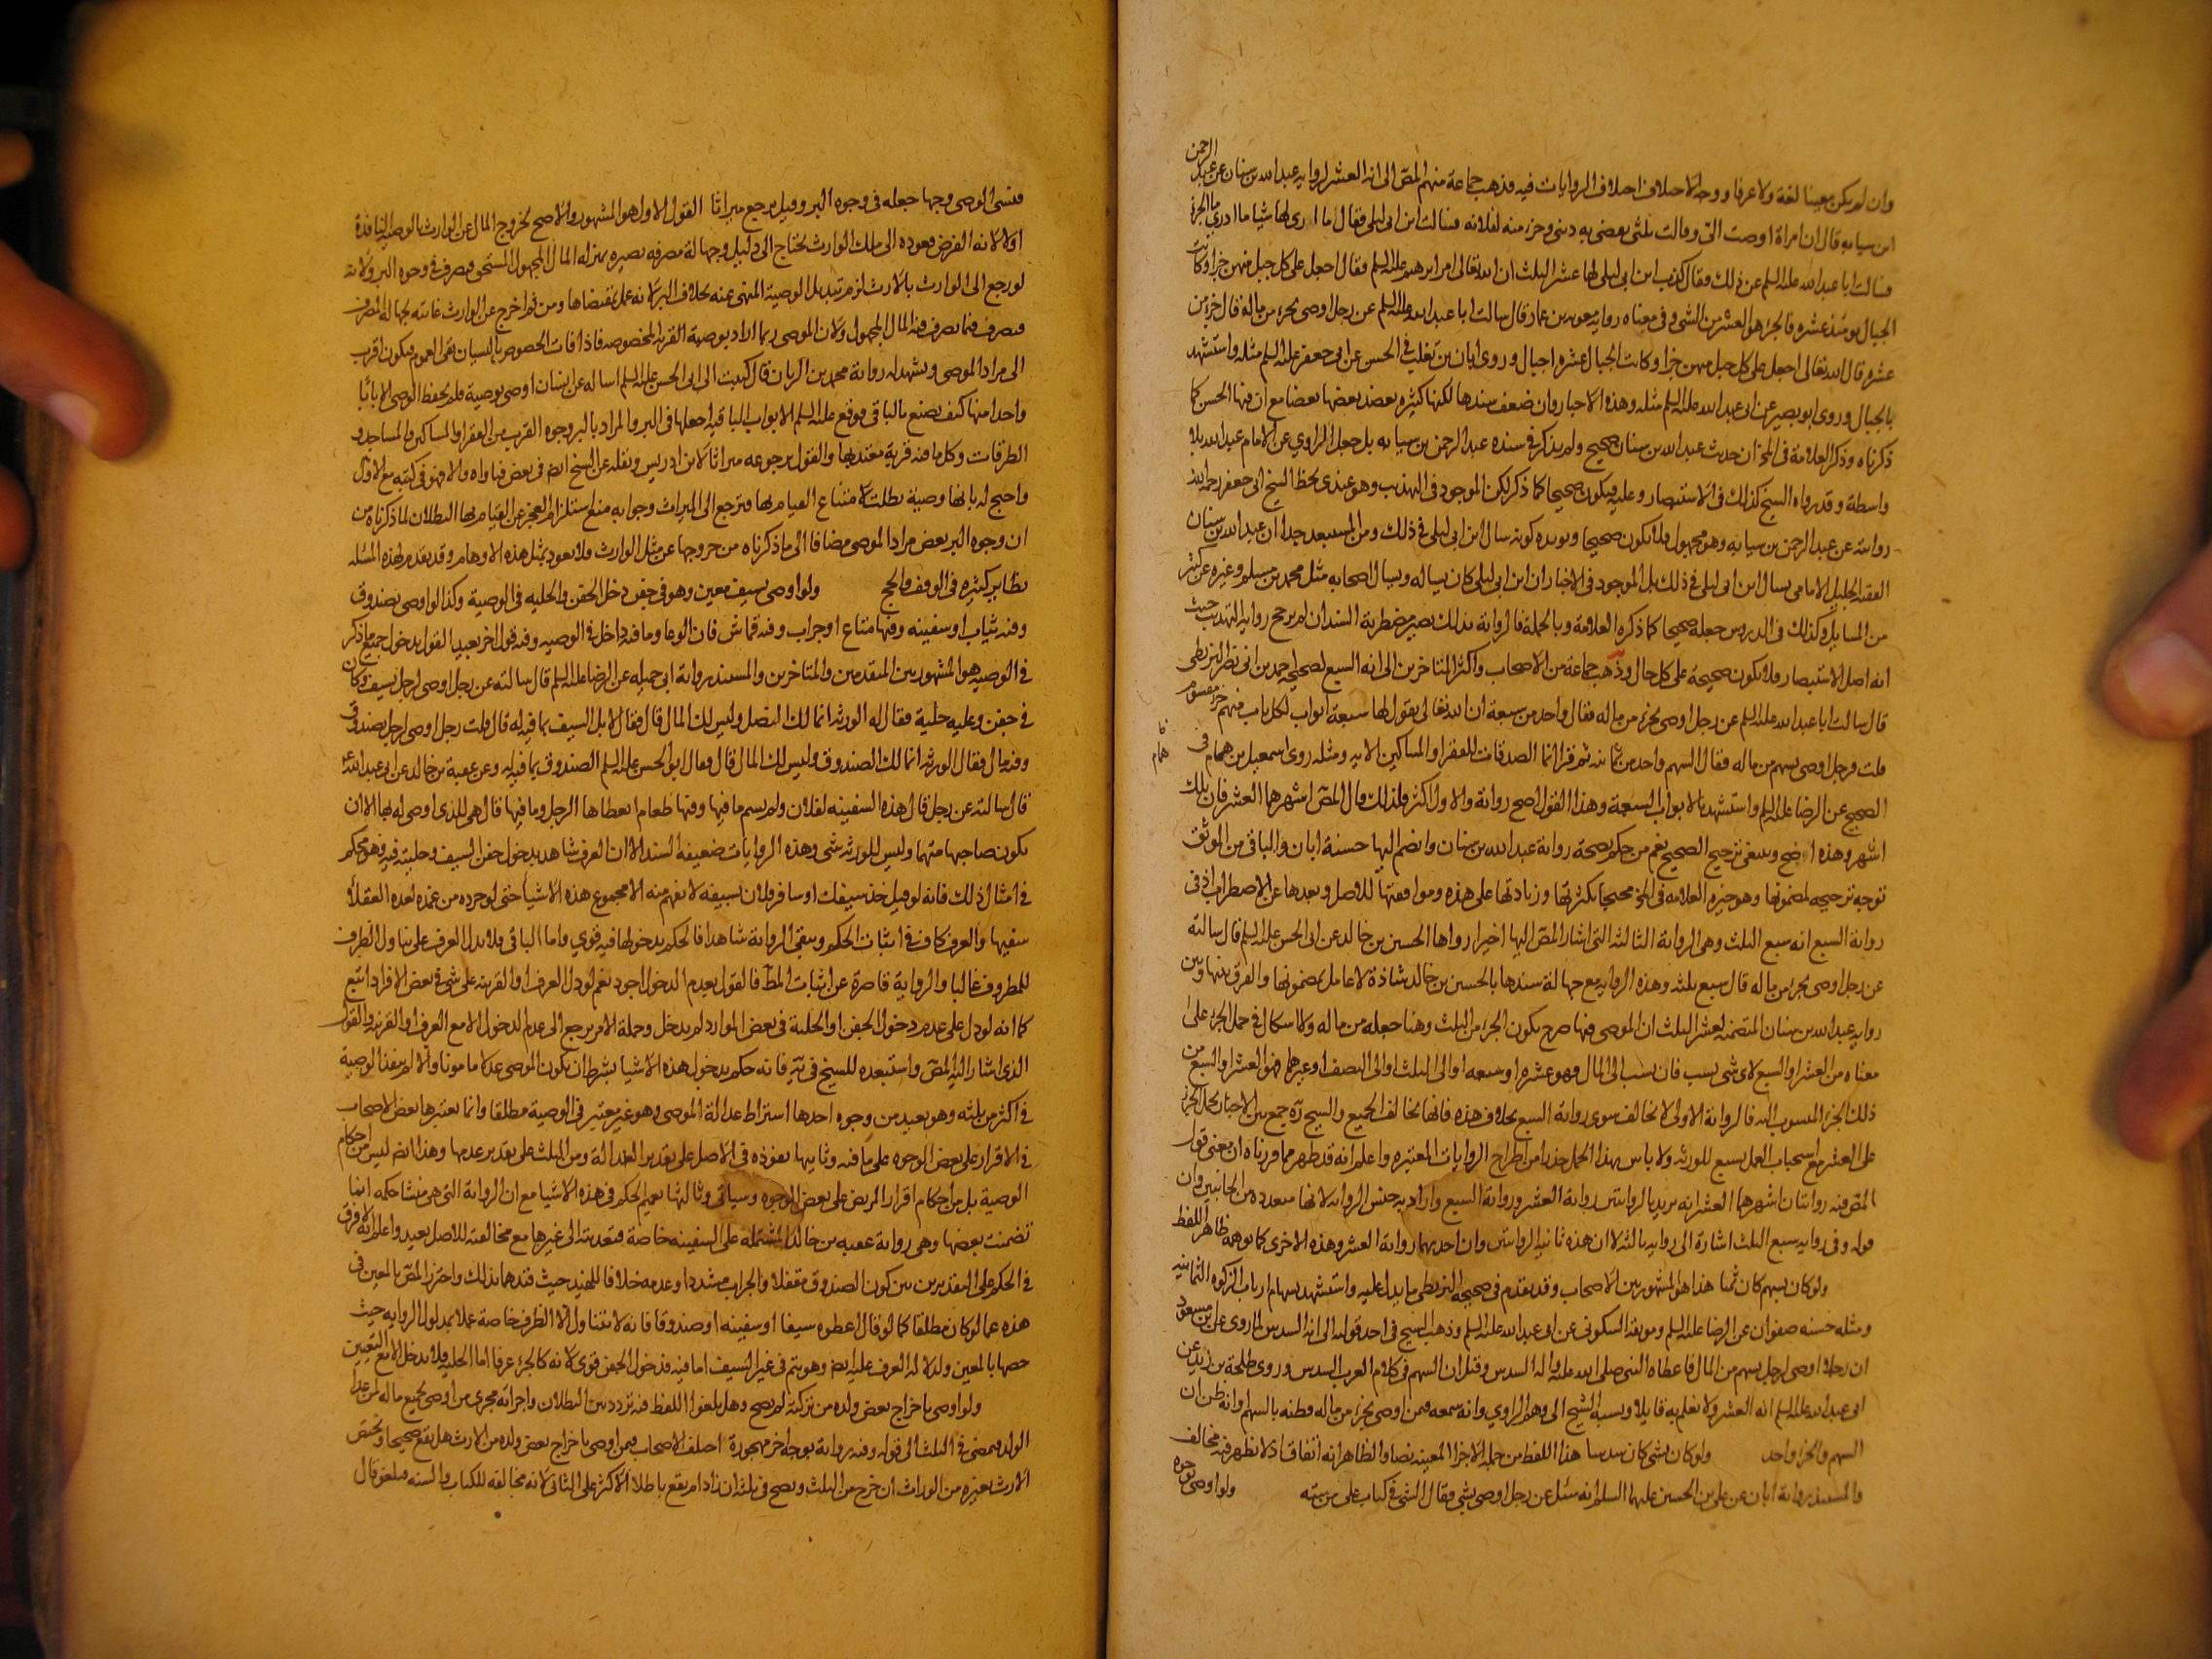 وان لم يكن معينا لغة ولا عرفا ووجه الاختلاف اختلاف الروايات فيه فذهب جماعة منهم المص الى انه العشر لرواية عبد الله بن سنان عن عبد الرحمن
ابن سيابه قال ان امراة اوصت الى وقالت ثلثى يقضى به دينى وجزء منه لفلانه فسالت ابن ابى ليلى فقال ما ارى لها شيا ما ادرى ما الجزء
فسالت ابا عبد الله عليه السلم عن ذلك فقال كذب ابن ابى ليلى لها عشر الثلث ان الله تعالى امر ابرهيم عليه السلم فقال اجعل على كل جبل منهن جزا وكانت
الجبال يومئذ عشره فالجزء هو العشر من الشى وفى معناه رواية معويه بن عمار قال سالت ابا عبد الله عليه السلم عن رجل اوصى بجزء من ماله قال جزء من
عشره قال الله تعالى اجعل على كل جبل منهن جزا وكانت الجبال عشره اجبال وروى ابان بن تغلب فى الحسن عن ابى جعفر عليه السلم مثله واستشهد
بالجبال وروى ابو بصير عن ابى عبد الله عليه السلم مثله وهذه الاخبار وان ضعف سندها لكنها كثيره يعضد بعضها بعضا مع ان فيها الحسن كما
ذكرناه وذكر العلامة فى المخ ان حديث عبد الله بن سنان صحيح ولم يذكر فى سنده عبد الرحمن بن سيابه بل جعل الراوي عن الامام عبد الله بلا
واسطة وقد رواه الشيخ كذلك فى الاستبصار وعليه فيكون صحيحا كما ذكر لكن الموجود فى التهذيب وهو عندى بخط الشيخ ابى جعفر رحمه الله
روايته عن عبد الرحمن بن سيابه وهو مجهول فلا يكون صحيحا ويويده كونه سال ابن ابى ليلى فى ذلك ومن المستبعد جدا ان عبد الله بن سنان
الفقيه الجليل الامامى يسال ابن ابى ليلى فى ذلك بل الموجود فى الاخبار ان ابن ابى ليلى كان يساله ويسال اصحابه مثل محمد بن مسلم وغيره عن كثير
من المسايل وكذلك فى الدروس جعله صحيحا كما ذكره العلامة وبالجملة فالرواية بذلك تصير مضطربة السند ان لم يرجح رواية التهذيب حيث
انه اصل الاستبصار فلا يكون صحيحة على كل حال وذهب جماعة من الاصحاب واكثر المتاخرين الى انه السبع لصحيحة احمد بن ابى نصر البزنطى
قال سالت ابا عبد الله عليه السلم عن رجل اوصى بجزء من ماله فقال واحد من سبعة ان الله تعالى يقول لها سبعة ابواب لكل باب منهم جزء مقسوم
قلت فرجل اوصى بسهم من ماله فقال السهم واحد من ثمانيه ثم قرا انما الصدقات للفقرا والمساكين الايه ومثله روى اسمعيل بن همام فى
همام
الصحيح عن الرضا عليه السلم واستشهد بالابواب السبعة وهذا القول اصح رواية والاول اكثر فلذلك قال المص اشهرهما العشر فان تلك
اشهر وهذه اصح وينبغى ترجيح الصحيح نعم من حكم بصحة رواية عبد الله بن سنان وانضم اليها حسنة ابان والباقى من الموثق
توجه ترجيحه لمضمونها وهو خيرة العلامه فى المخ محتجا بكثرتها وزيادتها على هذه وموافقتها للاصل وبعدها عن الاضطراب اذ فى
رواية السبع انه سبع الثلث وهى الرواية الثالثة التى اشار المص اليها اخيرا رواها الحسين بن خالد عن ابى الحسن عليه السلم قال سالته
عن رجل اوصى بجزء من ماله قال سبع ثلثه وهذه الرواية مع جهالة سندها بالحسين بن خالد شاذة لا عامل بمضمونها والفرق بينها وبين
رواية عبد الله بن سنان المتضمنه لعشر الثلث ان الموصى فيها صرح بكون الجزء من الثلث وهنا جعله من ماله ولا اشكال فى حمل الجزء على
معناه من العشر او السبع لاى شى نسب فان نسب الى المال فهو عشره او سبعه او الى الثلث او الى النصف او غيرهما فهو العشر او السبع من
ذلك الجزء المنسوب اليه فالرواية الاولى لا تخالف سوى رواية السبع بخلاف هذه فانها تخالف الجميع والشيخ ره جمع بين الاخبار بحمل الجزء
على العشر مع استحباب العمل بسبع للورثه ولا باس بهذا الحمل حذرا من اطراح الروايات المعتبره واعلم انه قد ظهر مما قررناه ان معنى قول
المص فيه روايتان اشهرهما العشر انه يريد بالروايتين رواية العشر ورواية السبع واراد به جنس الروايه لانها متعدده من الجانبين وان
قوله وفى روايه سبع الثلث اشارة الى روايه ثالثه لا ان هذه ثانية الروايتين وان احديهما رواية العشر وهذه الاخرى كما يوهمه ظاهر اللفظ
ولو كان بسهم كان ثمنا هذا هو المشهور بين الاصحاب وقد تقدم فى صحيحة البزنطى ما يدل عليه واستشهد بسهام ارباب الزكوة الثمانيه
ومثله حسنه صفوان عن الرضا عليه السلم وموثقة السكونى عن ابى عبد الله عليه السلم وذهب الشيخ فى احد قوليه الى انه السدس لما روى عن ابن مسعود
ان رجلا اوصى لرجل بسهم من المال فاعطاه النبى صلى الله عليه واله السدس وقيل ان السهم فى كلام العرب السدس وروى طلحة بن زيد عن
ابى عبد الله عليه السلم انه العشر ولا نعلم به قايلا ونسبه الشيخ الى وهم الراوي وانه سمعه فيمن اوصى بجزء من ماله فظنه بالسهم او انه ظن ان
السهم والجزء واحد ولو كان بشى كان سدسا هذا اللفظ من جملة الاجزا المعينه نصا والظاهر انه اتفاق اذ لا يظهر فيه مخالف
والمستند رواية ابان عن على بن الحسين عليهما السلم انه سئل عن رجل اوصى بشى فقال الشى فى كتاب على من سته ولو اوصى بوجوه
فنسى الوصى وجها جعله فى وجوه البر وقيل يرجع ميراثا القول الاول هو المشهور والاصح لخروج المال عن الوارث بالوصية النافذة
اولا لانه الفرض فعوده الى ملك الوارث يحتاج الى دليل وجهالة مصرفه تصيره بمنزلة المال المجهول المستحق فيصرف فى وجوه البر ولانه
لو رجع الى الوارث بالارث لزم تبديل الوصية المنهى عنه بخلاف البر لانه عمل بمقتضاها ومن ثم اخرج عن الوارث غايته جهالة المصرف
فيصرف فيما يصرف فيه المال المجهول ولان الموصى ربما اراد بوصيته القربة المخصوصه فاذا فات الخصوص بالنسيان بقى العموم فيكون اقرب
الى مراد الموصى ويشهد له رواية محمد بن الريان قال كتبت الى ابى الحسن عليه السلم اساله عن انسان اوصى بوصية فلم يحفظ الوصى الا بابا
واحدا منها كيف يصنع بالباقى فوقع عليه السلم الابواب الباقية اجعلها فى البر والمراد بالبر وجوه القرب من الفقرا والمساكين والمساجد و
الطرقات وكل ما فيه قربة معتد بها والقول برجوعه ميراثا لابن ادريس ونقله عن الشيخ ايض فى بعض فتاواه والا فهو فى كتبه مع الاول
واحتج له بانها وصية بطلت لامتناع القيام بها فترجع الى الميراث وجوابه منع استلزام العجز عن القيام بها البطلان لما ذكرناه من
ان وجوه البر بعض مراد الموصى مضافا الى ما ذكرناه من خروجها عن مثل الوارث فلا يعود بمثل هذه الاوهام وقد تقدم لهذه المسئله
نظاير كثيره فى الوقف والحج ولو اوصى بسيف معين وهو فى جفن دخل الجفن والحليه فى الوصية وكذا لو اوصى بصندوق
وفيه ثياب او سفينه وفيها متاع او جراب وفيه قماش فان الوعا وما فيه داخل فى الوصيه وفيه قول اخر بعيد القول بدخول جميع ما ذكر
فى الوصيه هو المشهور بين المتقدمين والمتاخرين والمستند رواية ابى جميله عن الرضا عليه السلم قال سالته عن رجل اوصى لرجل بسيف وكان
فى جفن وعليه حلية فقال له الورثه انما لك النصل وليس لك المال قال فقال لا بل السيف بما فيه له قال قلت رجل اوصى لرجل بصندوق
وفيه مال فقال الورثه انما لك الصندوق وليس لك المال قال فقال ابو الحسن عليه السلم الصندوق بما فيه له وعن عقبة بن خالد عن ابى عبد الله ع
قال سالته عن رجل قال هذه السفينه لفلان ولم يسم ما فيها وفيها طعام يعطاها الرجل وما فيها قال هى للذى اوصى له بها الا ان
يكون صاحبها متهما وليس للورثه شى وهذه الروايات ضعيفة السند الا ان العرف شاهد بدخول جفن السيف وحليته فيه وهو محكم
فى امثال ذلك فانه لو قيل خذ سيفك او سافر فلان بسيفه لا يفهم منه الا مجموع هذه الاشيا حتى لو جرده من غمده لعده العقلا
سفيها والعرف كاف فى اثبات الحكم وتبقى الرواية شاهدا فالحكم بدخولها فيه قوي واما الباقى فلا يدل العرف على تناول الظرف
للمظروف غالبا والرواية قاصرة عن اثبات المط فالقول بعدم الدخول اجود نعم لو دل العرف او القرينه على شى فى بعض الافراد اتبع
كما انه لو دل على عدم دخول الجفن او الحلية فى بعض الموارد لم يدخل وجملة الامر يرجع الى عدم الدخول الا مع العرف او القرينه والقول
الذى اشار اليه المص واستبعده للشيخ فى يه فانه حكم بدخول هذه الاشيا بشرط ان يكون الموصى عدلا مامونا والا لم ينفذ الوصية
فى اكثر من ثلثه وهو بعيد من وجوه احدها اشتراط عدالة الموصى وهو غير معتبر فى الوصية مطلقا وانما يعتبرها بعض الاصحاب
فى الاقرار على بعض الوجوه على ما فيه وثانيها نفوذه فى الاصل على تقدير العدالة ومن الثلث على تقدير عدمها وهذا ايض ليس من احكام
الوصية بل من احكام اقرار المريض على بعض الوجوه وسياتى وثالثها تعميم الحكم فى هذه الاشيا مع ان الرواية التى هى منشا حكمه انما
تضمنت بعضها وهى رواية عقبه بن خالد المشتمله على السفينه خاصة فتعديته الى غيرها مع مخالفته للاصل بعيد واعلم انه لا فرق
فى الحكم على التقديرين بين كون الصندوق مقفلا والجراب مشددا وعدمه خلافا للمفيد حيث قيدهما بذلك واحترز المص بالمعين فى
هذه عما لو كان مطلقا كما لو قال اعطوه سيفا او سفينه او صندوقا فانه لا يتناول الا الظرف خاصة عملا بمدلول الروايه حيث
خصها بالمعين ولدلالة العرف عليه ايض وهو يتم فى غير السيف اما فيه فدخول الجفن قوى لانه كالجزء عرفا اما الحليه فلا يدخل الا مع التعيين
ولو اوصى باخراج بعض ولده من تركته لم يصح وهل يلغو اللفظ فيه تردد بين البطلان واجرائه مجرى من اوصى بجميع ماله لمن عدا
الولد فيمضى فى الثلث الى قوله وفيه رواية بوجه اخر مهجورة اختلف الاصحاب فيمن اوصى باخراج بعض ولده من الارث هل يقع صحيحا ويختص
الارث بغيره من الوراث ان خرج من الثلث ويصح فى ثلثه ان زاد ام يقع باطلا الاكثر على الثانى لانه مخالفه للكتاب والسنه فيلغو قال